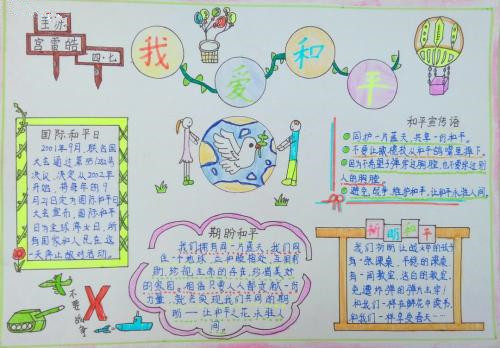 主办
宫雷皓
四·七
我爱和平
国际和平日
2001年9月,联合国
大会通过第55/282号
决议,决定从2002年
开始,将每年的9
月21日定为国际和平日
大会宣布,国际和平
日为全球停火日,所
有国家和人民在这
一天停止敌对活动。
和平宣传语
同护一片蓝天,共享一份和平。
不要让橄榄枝从和平鸽嘴里掉下。
因为不希望子弹穿过胸膛,也不要穿过别
人的胸膛。
避免战争,维护和平,让和平永驻人间。
期盼和平
我们拥有同一片蓝天,我们同
住一个地球,应和睦相处,互图有
助,珍视生命的存在,珍惜美好
的家园。相信只要人人都贡献一份
力量,就能实现我们共同的期
盼——让和平之花永驻人
间。
祈盼和平
我们祈盼让战火中的孩子
有一张课桌,平稳的课桌,
有一间教室,洁白的教室,
免遭炸弹的弹片击穿!
和我们一样在鲜花中读书,
和我们一样享受春天……
不要战争